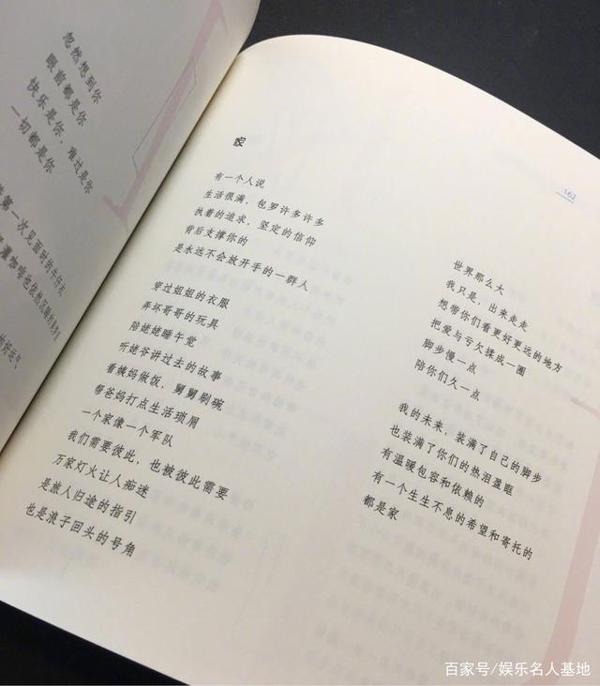 忽然想到你
眼前都是你
快乐是你，难过是你
一切都是你
家
有一个人说
生活很满，包罗许多许多
执着的追求，坚定的信仰
背后支撑你的
是永远不会放开手的一群人
穿过姐姐的衣服
弄坏哥哥的玩具
陪姥姥睡午觉
听姥爷讲过去的故事
看姨妈做饭，舅舅刷碗
帮爸妈打点生活琐屑
一个家像一个军队
我们需要彼此，也被彼此需要
万家灯火让人痴迷
是旅人归途的指引
也是浪子回头的号角
162
世界那么大
我只是，出来走走
想带你们看更好更远的地方
把爱与亏欠揉成一团
脚步慢一点
陪你们久一点
我的未来，装满了自己的脚步
也装满了你们的热泪盈眶
有温暖包容和依赖的
有一个生生不息的希望和寄托的
都是家
百家号/娱乐名人基地